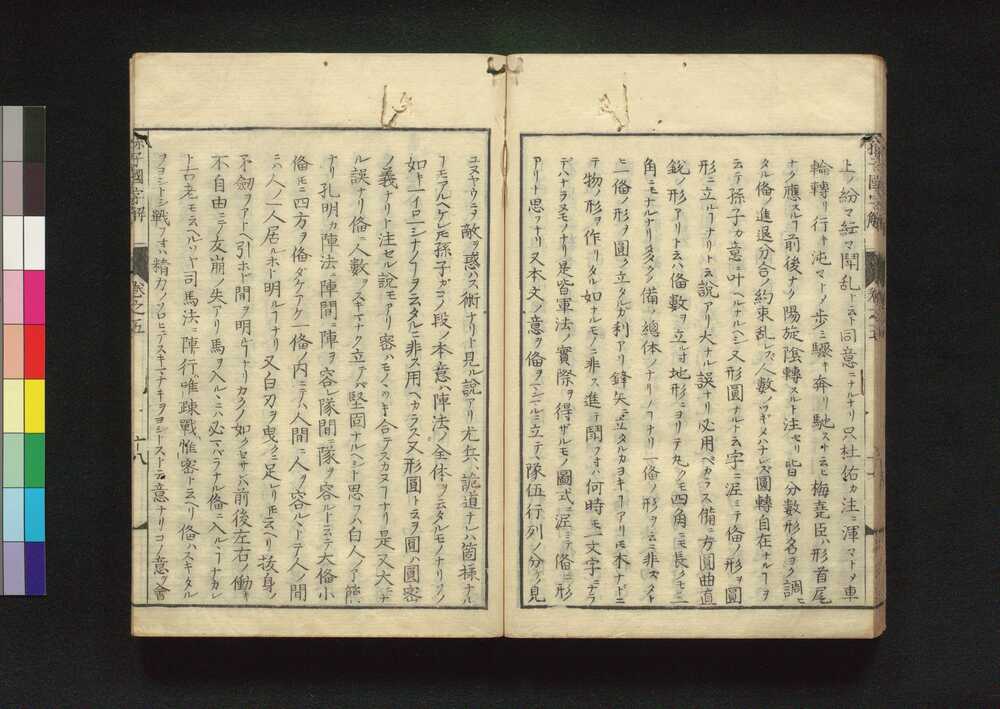 上ノ紛マ紜マ鬪乱ト云ト同意ニナルナリ只杜佑カ注ニ渾マトメ車
輪轉リ行ト沌マトメ歩ミ驟キ奔リ馳スサ云ヒ梅堯臣ハ形首尾
ナク應スルヿ前後ナク陽旋陰轉スルト注セリ皆分數形名ヨク調ヒ
タル備ノ進退分合ノ約束乱レズ人數ノツギメハナレズ圓轉自在ナルヿヲ
云テ孫子カ意ニ叶ヘルナルベシ又形圓ナルト云字ニ泥ミテ備ノ形ヲ圓
形ニ立ルヿナリト云説アリ大ナル誤ナリ必用ベカラス備ニ方圓曲直
鋭ノ形アリト云ハ備數ヲ立ル寸地形ニヨリテ丸クモ四角ニモ長クモ三
角ニモナルナリ多クノ備ノ總体ノナリノヿナリ一備ノ形ヲ云ニ非ス又
ヒ一備ノ形ヲ圓ク立タルカ利アリ鋒矢ニ立タルカヨキヿアリ𪜈木ナドニ
テ物ノ形ヲ作リタル如ナルモノニ非ス進テ鬪フオハ何時モ一文字ニテラ
デハナラヌモノナリ是皆軍法ノ實際ヲ得ザルモノ圖式ニ泥ミテ備ニ形
アリナト思フナリ又本文ノ意ヲ備ヲマンマルニ立テ隊伍行列ノ分チ見
ユヌヤウニメ敵ヲ惑ハス術ナリト見ル説アリ尤兵ハ詭道ナレハ箇様ナル
ヿモアルヘケレ𪜈孫子ガコノ段ノ本意ハ陣法ノ全体ヲ云タルモノナリカノ
如キ一イロ一シナノヿヲ云タルニ非ス用ヘカラス又形圓ト云ヲ圓ハ圓密
ノ義ナリト注セル説モアリ密ハモノヽヨキ合テスカヌヿナリ是又大ナ
ル誤ナリ備ニ人數ヲスキマナク立テバ堅固ナルヘシト思フハ白人ノ了簡
ナリ孔明カ陣法ニ陣間ニ陣ヲ容レ隊間ニ隊ヲ容ルト云テ大備小
備𪜈ニ四方ヲ備ダケアケ一備ノ内ニテハ人間ニ人ヲ容ルヽトテ人ノ間
ニハ人ノ一人居ルホド明ルヿナリ又白刃ヲ曳クニ足レリ𪜈云ヘリ抜身ノ
不自由ニテ友崩ノ失アリ馬ヲ入ルヽニハ必マバラナル備ニ入ルヽナカレ
ト古老モ云ヘルゾト司馬法ニ陣行惟疎戰惟密ト云ヘリ備ハスキタル
ヲヨシトシ戰フオハ精力ノソロヒテスキマナキヲヨシトスト云意ナリコノ意ヲ會
孫子國字解
卷之五
十八